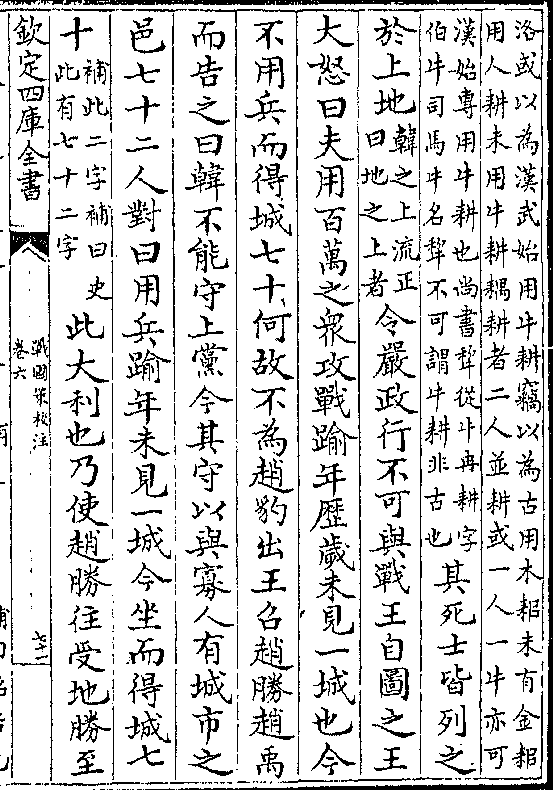 洛或以為漢武始用牛耕竊以為古用木耜未有金耜
用人耕未用牛耕耦耕者二人並耕或一人一牛亦可
漢始專用牛耕也尚書犂從牛冉耕字
伯牛司馬牛名犂不可謂牛耕非古也
其死士皆列之
於上地
韓之上流正
曰地之上者
令嚴政行不可與戰王自圖之王
大怒曰夫用百萬之衆攻戰踰年歴歲未見一城也今
不用兵而得城七十何故不為趙豹出王召趙勝趙禹
而告之曰韓不能守上黨今其守以與寡人有城市之
邑七十二人對曰用兵踰年未見一城今坐而得城七
十
補此二字補曰史
此有七十二字
此大利也乃使趙勝往受地勝至
欽定四庫全書
戰國策校注
卷六